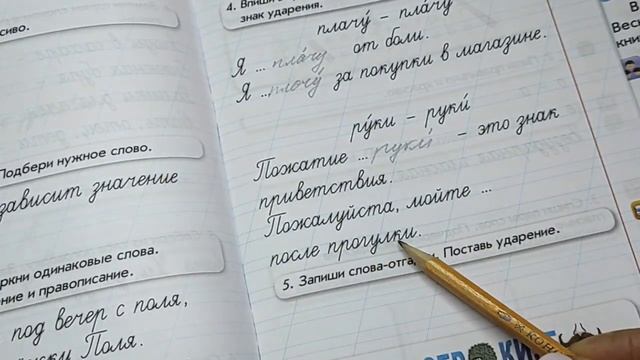 сиво.
Подбери нужное слово.
зависит значение
ркни одинаковые слова.
ние и правописание.
под вечер с поля,
Поля.
4. Впиши
знак ударения.
плачу́ – пла́чу
Я ... пла́чу от боли.
Я ... плочу́ за покупки в магазине.
ру́ки – руки́
Пожатие ... руки́ – это знак
приветствия.
Пожалуйста, мойте ...
после прогулки.
5. Запиши слова-отга Поставь ударение.
В
Вес
кни